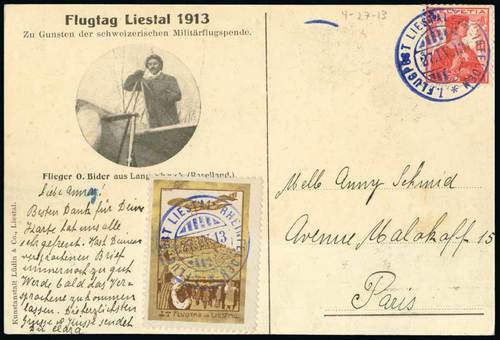 Flugtag Liestal 1913
Zu Gunsten der schweizerischen Militärflugspende.
4-27-13
HELVETIA
I. FLUGPOST LIESTAL-RHEINFELDEN
27.IV.13
Flieger O. Bider aus Langenbruck (Baselland).
Kunstanstalt Lüdin & Co., Liestal.
Liebe Anny!
Besten Dank für Deine
Karte hat uns alle
sehr gefreut. Hast Deinen
versprochenen Brief
immer noch zu gut
Werde bald das Ver-
sprochene zukommen
lassen. Die herzlichsten
Grüsse & Küsse sendet
Clara
FLUGPOST LIESTAL-RHEINFELDEN
27.IV.13
FLUGTAG in LIESTAL
Melle Anny Schmid
Avenue Malakoff 15
Paris